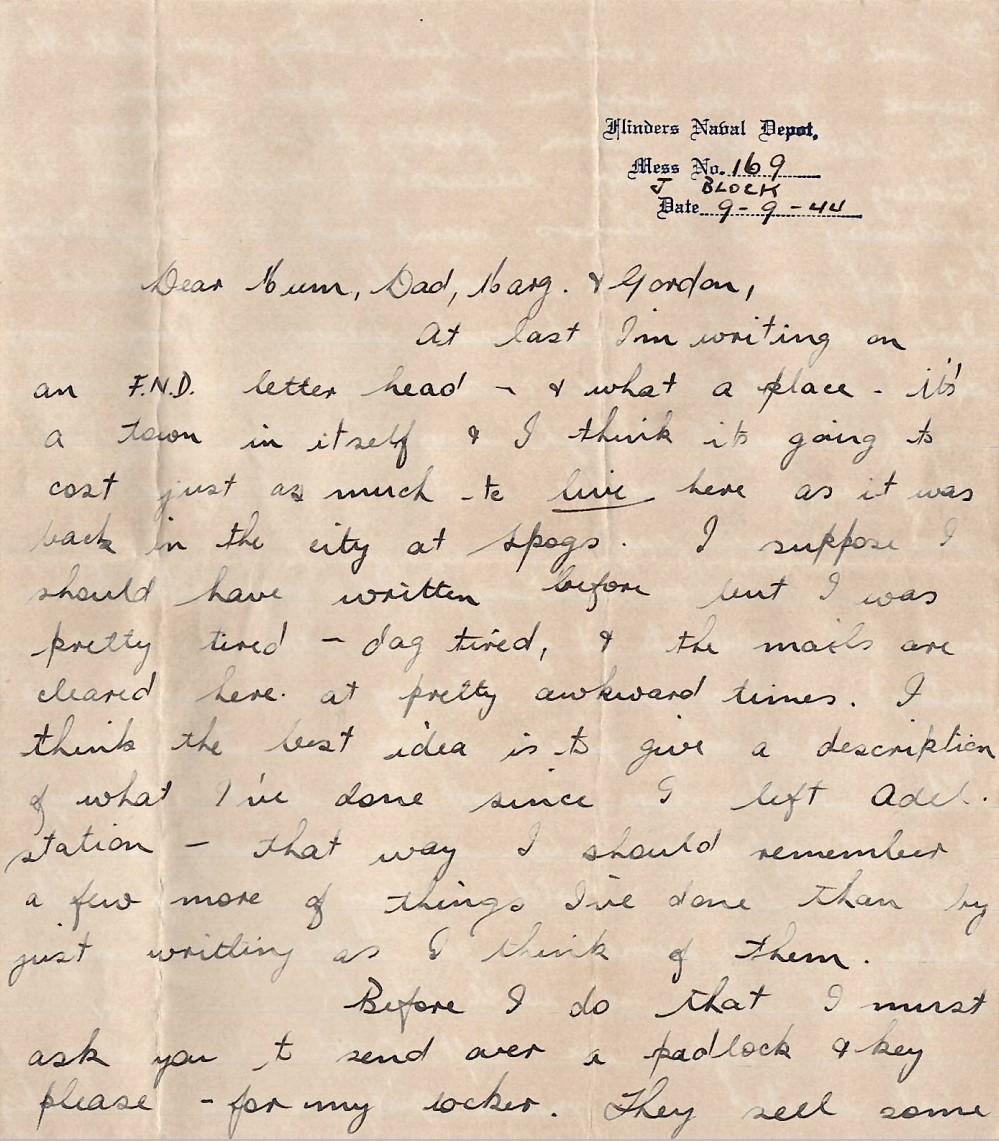 Flinders Naval Depot.
Mess No. 169
J BLOCK
Date 9-9-44
Dear Mum, Dad, Marg. & Gordon,
At last I'm writing on
an F.N.D. letter head - & what a place - it's
a town in itself & I think its going to
cost just as much to live here as it was
back in the city at spogs. I suppose I
should have written before but I was
pretty tired - dag tired, & the mails are
cleared here. at pretty awkward times. I
think the best idea is to give a description
of what I've done since I left Adel.
station - that way I should remember
a few more of things I've done than by
just writting as I think of them.
Before I do that I must
ask you to send over a padlock & key
please - for my locker. They sell some